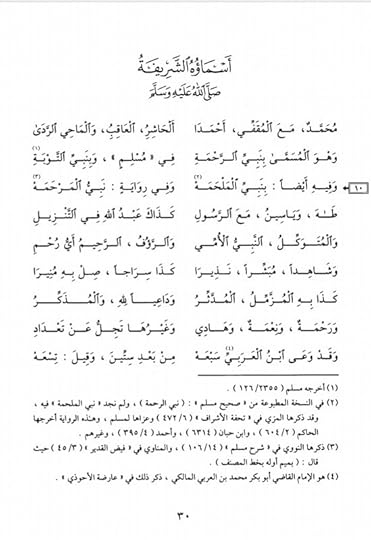 أَسْمَاؤُهُ الشَّرِيفَةُ
صَلَّى اللهُ عَلَيْهِ وَسَلَّمَ
مُحَمَّدٌ، مَعَ الْمُقَفِّي، أَحْمَدَا    اَلْحَاشِرُ، الْعَاقِبُ، وَالْمَاحِي الرَّدَىٰ
وَهْوَ الْمُسَمَّىٰ بِنَبِيِّ الرَّحْمَةِ    فِي « مُسْلِمٍ » ، وَبِنَبِيِّ التَّوْبَةِ (١)
١٠ وَفِيهِ أَيْضاً : بِنَبِيِّ الْمَلْحَمَهْ (٢)    وَفِي رِوَايَةٍ : نَبِيُّ الْمَرْحَمَهْ (٣)
طَـٰهَ ، وَيَاسِينُ ، مَعَ الرَّسُولِ    كَذَاكَ عَبْدُ اللهِ فِي التَّنْزِيلِ
وَالْمُتَوَكِّلُ ، النَّبِيُّ الْأُمِّي    وَالرَّؤُفُ ، الرَّحِيمُ أَيُّ رُحْمِ
وَشَاهِداً ، مُبَشِّراً ، نَذِيرَا    كَذَا سِرَاجاً ، صِلْ بِهِ مُنِيرَا
كَذَا بِهِ الْمُزَّمِّلُ ، الْمُدَّثِّرُ    وَدَاعِياً لِلهِ ، وَالْمُذَكِّرُ
وَرَحْمَةٌ ، وَنِعْمَةٌ ، وَهَادِي    وَغَيْرُهَا تَجِلُّ عَنْ تَعْدَادِ
وَقَدْ وَعَى ٱبْنُ الْعَرَبِيِّ (٤) سَبْعَهْ    مِنْ بَعْدِ سِتِّينَ ، وَقِيلَ : تِسْعَهْ
(١) أخرجه مسلم ( ١٢٦/٢٣٥٥ ) .
(٢) في النسخة المطبوعة من « صحيح مسلم » : ( نبي الرحمة ) ، ولم نجد « نبي الملحمة » فيه ،
وقد ذكرها المزي في « تحفة الأشراف » ( ٤٧٢/٦ ) وعزاها لمسلم ، وهذه الرواية أخرجها
الحاكم ( ٦٠٤/٢ ) ، وابن حبان ( ٦٣١٤ ) ، وأحمد ( ٣٩٥/٤ ) ، وغيرهم .
(٣) ذكرها النووي في « شرح مسلم » ( ١٠٦/١٤ ) ، والمناوي في « فيض القدير » ( ٤٥/٣ ) حيث
قال : ( بميم أوله بخط المصنف ) .
(٤) هو الإمام القاضي أبو بكر محمد بن العربي المالكي ، ذكر ذلك في « عارضة الأحوذي » .
٣٠